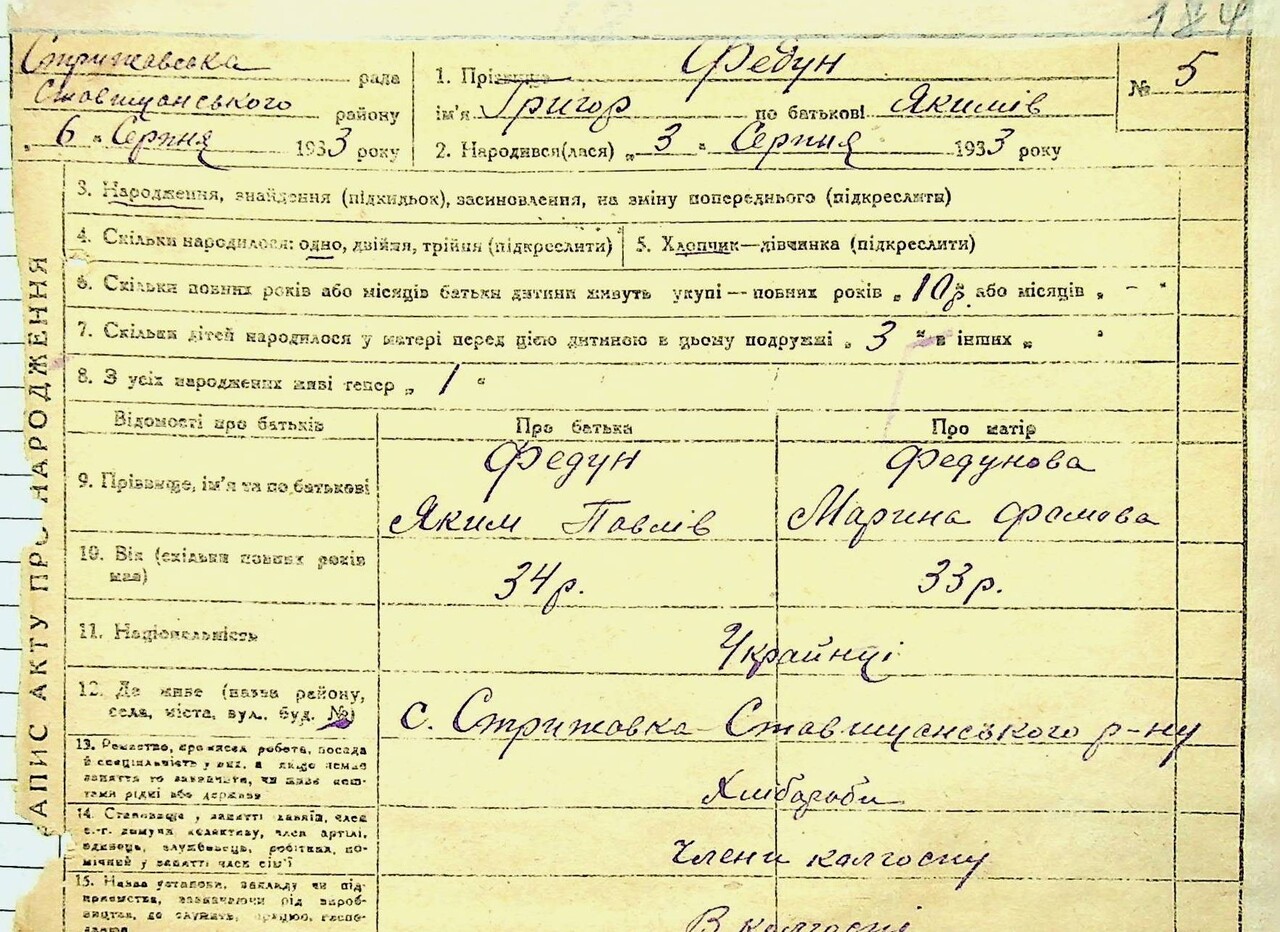 184
Стрижавська рада
Ставищанського району
„ 6 " Серпня 1933 року
1. Прізвище Федун
ім'я Григор по батькові Якимів
2. Народився(лася) „ 3 " Серпня 1933 року
№ 5
3. Народження, знайдення (підкидьок), засиновлення, на зміну попереднього (підкреслити)
4. Скільки народилося: одно, двійня, трійня (підкреслити)
5. Хлопчик—дівчинка (підкреслити)
6. Скільки повних років або місяців батьки дитини живуть укупі — повних років „ 10 р. або місяців „ - "
7. Скільки дітей народилося у матері перед цією дитиною в цьому подружжі „ 3 " в інших „ "
8. З усіх народжених живі тепер „ 1 "
Відомості про батьків
Про батька
Про матір
9. Прізвище, ім'я та по батькові
Федун
Яким Павлів
Федунова
Марина Фомова
10. Вік (скільки повних років
має)
34 р.
33 р.
11. Національність
Українці
12. Де живе (назва району,
села, міста, вул., буд. №)
с. Стрижавка Ставищанського р-ну
13. Ремество, промисел робота, посада
й спеціяльність у них, а якщо немає
заняття то зазначити, чи живе кош-
тами рідні або держави
Хлібороби
14. Становище у занятті хазяїн, член
с.-г. комуни колективу, член артілі,
одинець, службовець, робітник, по-
мічний у занятті член сім'ї
Члени колгоспу
15. Назва установи, закладу чи під-
приємства, зазначаючи рід вироб-
ництва, де служить, працює, госпо-
В колгоспі
АПИС АКТУ ПРО НАРОДЖЕННЯ